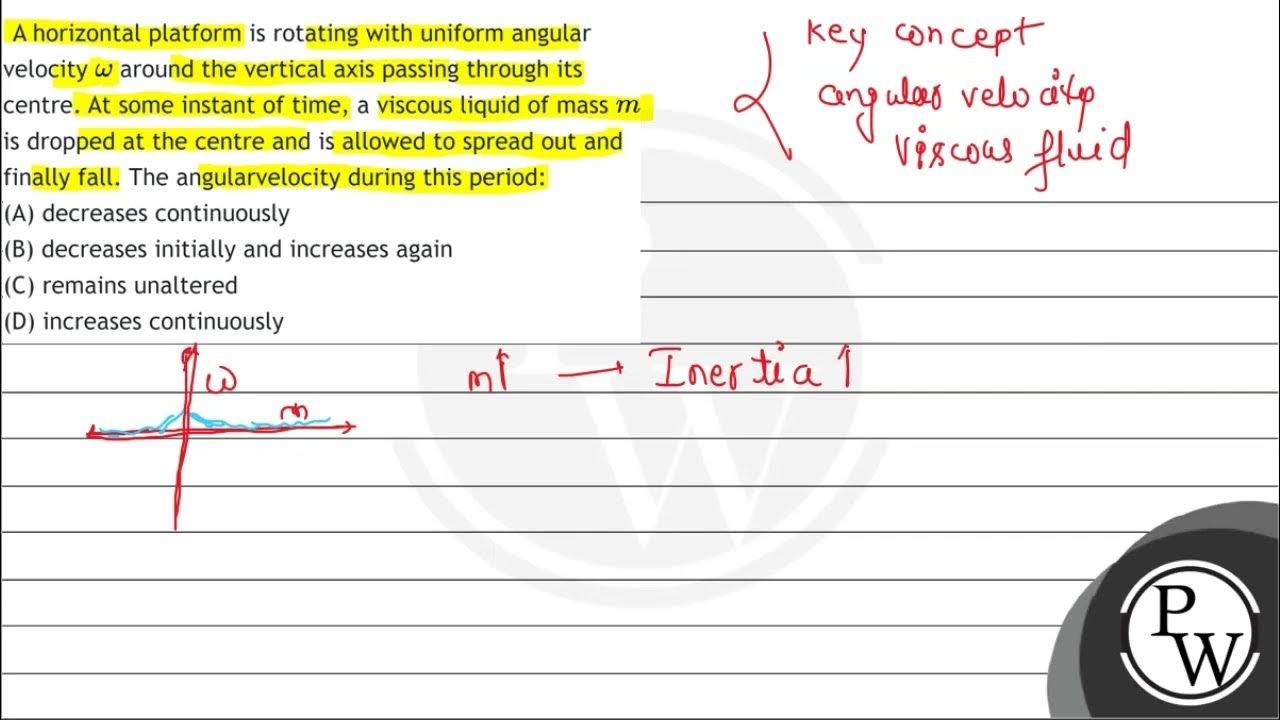 A horizontal platform is rotating with uniform angular
velocity ω around the vertical axis passing through its
centre. At some instant of time, a viscous liquid of mass m
is dropped at the centre and is allowed to spread out and
finally fall. The angularvelocity during this period:
(A) decreases continuously
(B) decreases initially and increases again
(C) remains unaltered
(D) increases continuously
Key concept
angular velocity
viscous fluid
ω
m
m↑ → Inertia ↑
PW